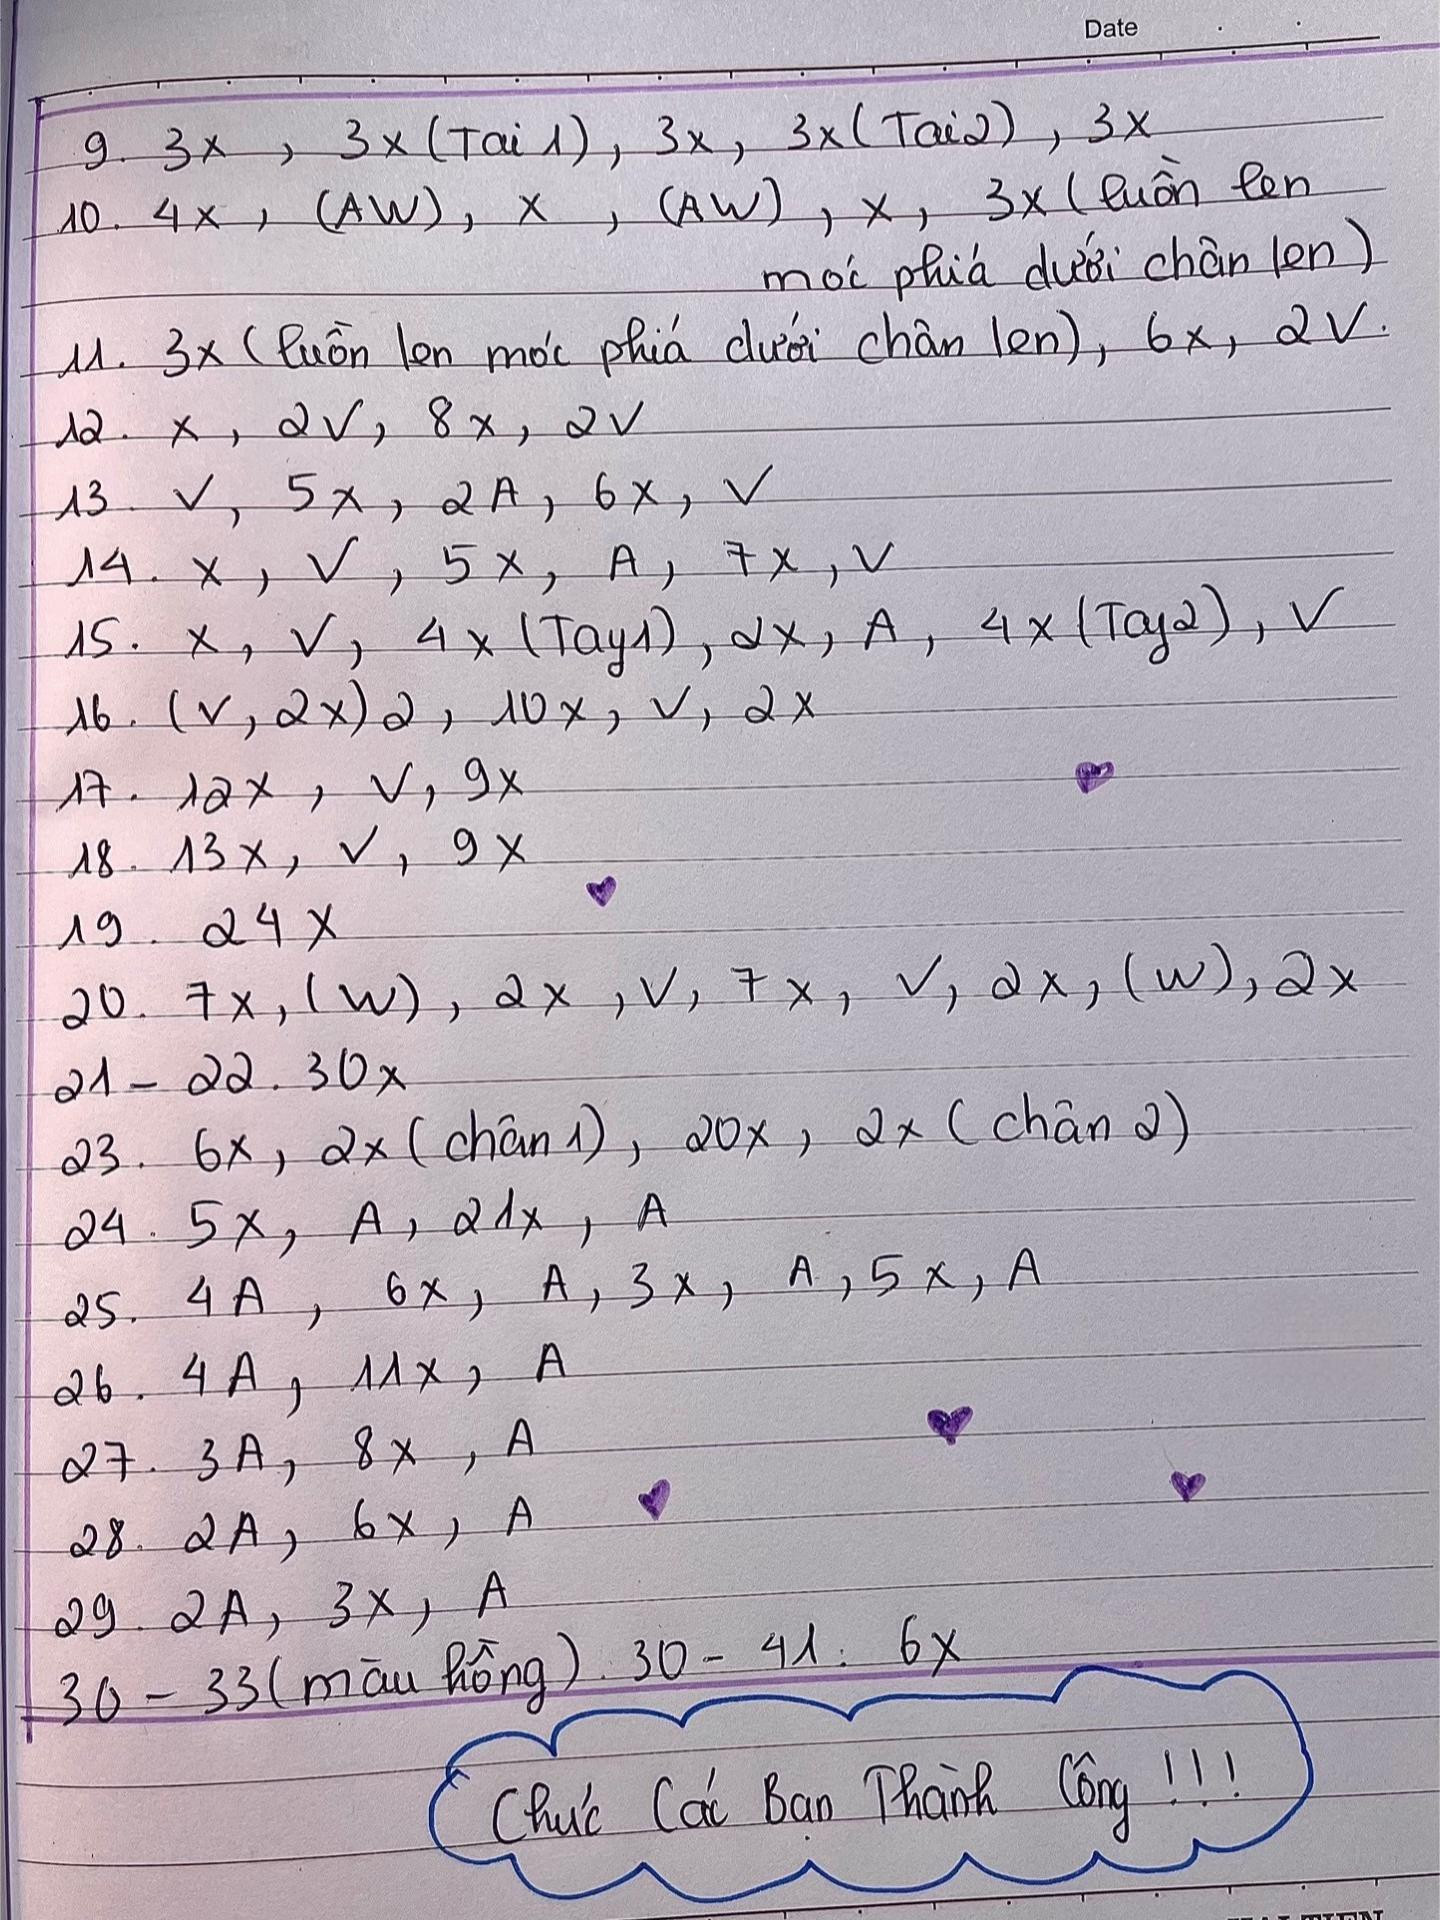 Date
9. 3x, 3x (Tai 1), 3x, 3x (Tai 2), 3x
10. 4x, (AW), x, (AW), x, 3x (luồn len
móc phiá dưới chân len)
11. 3x (luồn len móc phiá dưới chân len), 6x, 2V.
12. x, 2V, 8x, 2V
13. V, 5x, 2A, 6x, V
14. x, V, 5x, A, 7x, V
15. x, V, 4x (Tay 1), 2x, A, 4x (Tay 2), V
16. (V, 2x) 2, 10x, V, 2x
17. 12x, V, 9x
18. 13x, V, 9x
19. 24x
20. 7x, (W), 2x, V, 7x, V, 2x, (W), 2x
21 - 22. 30x
23. 6x, 2x (chân 1), 20x, 2x (chân 2)
24. 5x, A, 21x, A
25. 4A, 6x, A, 3x, A, 5x, A
26. 4A, 11x, A
27. 3A, 8x, A
28. 2A, 6x, A
29. 2A, 3x, A
30 - 33 (màu hồng). 30 - 41: 6x
Chúc Các Bạn Thành Công !!!